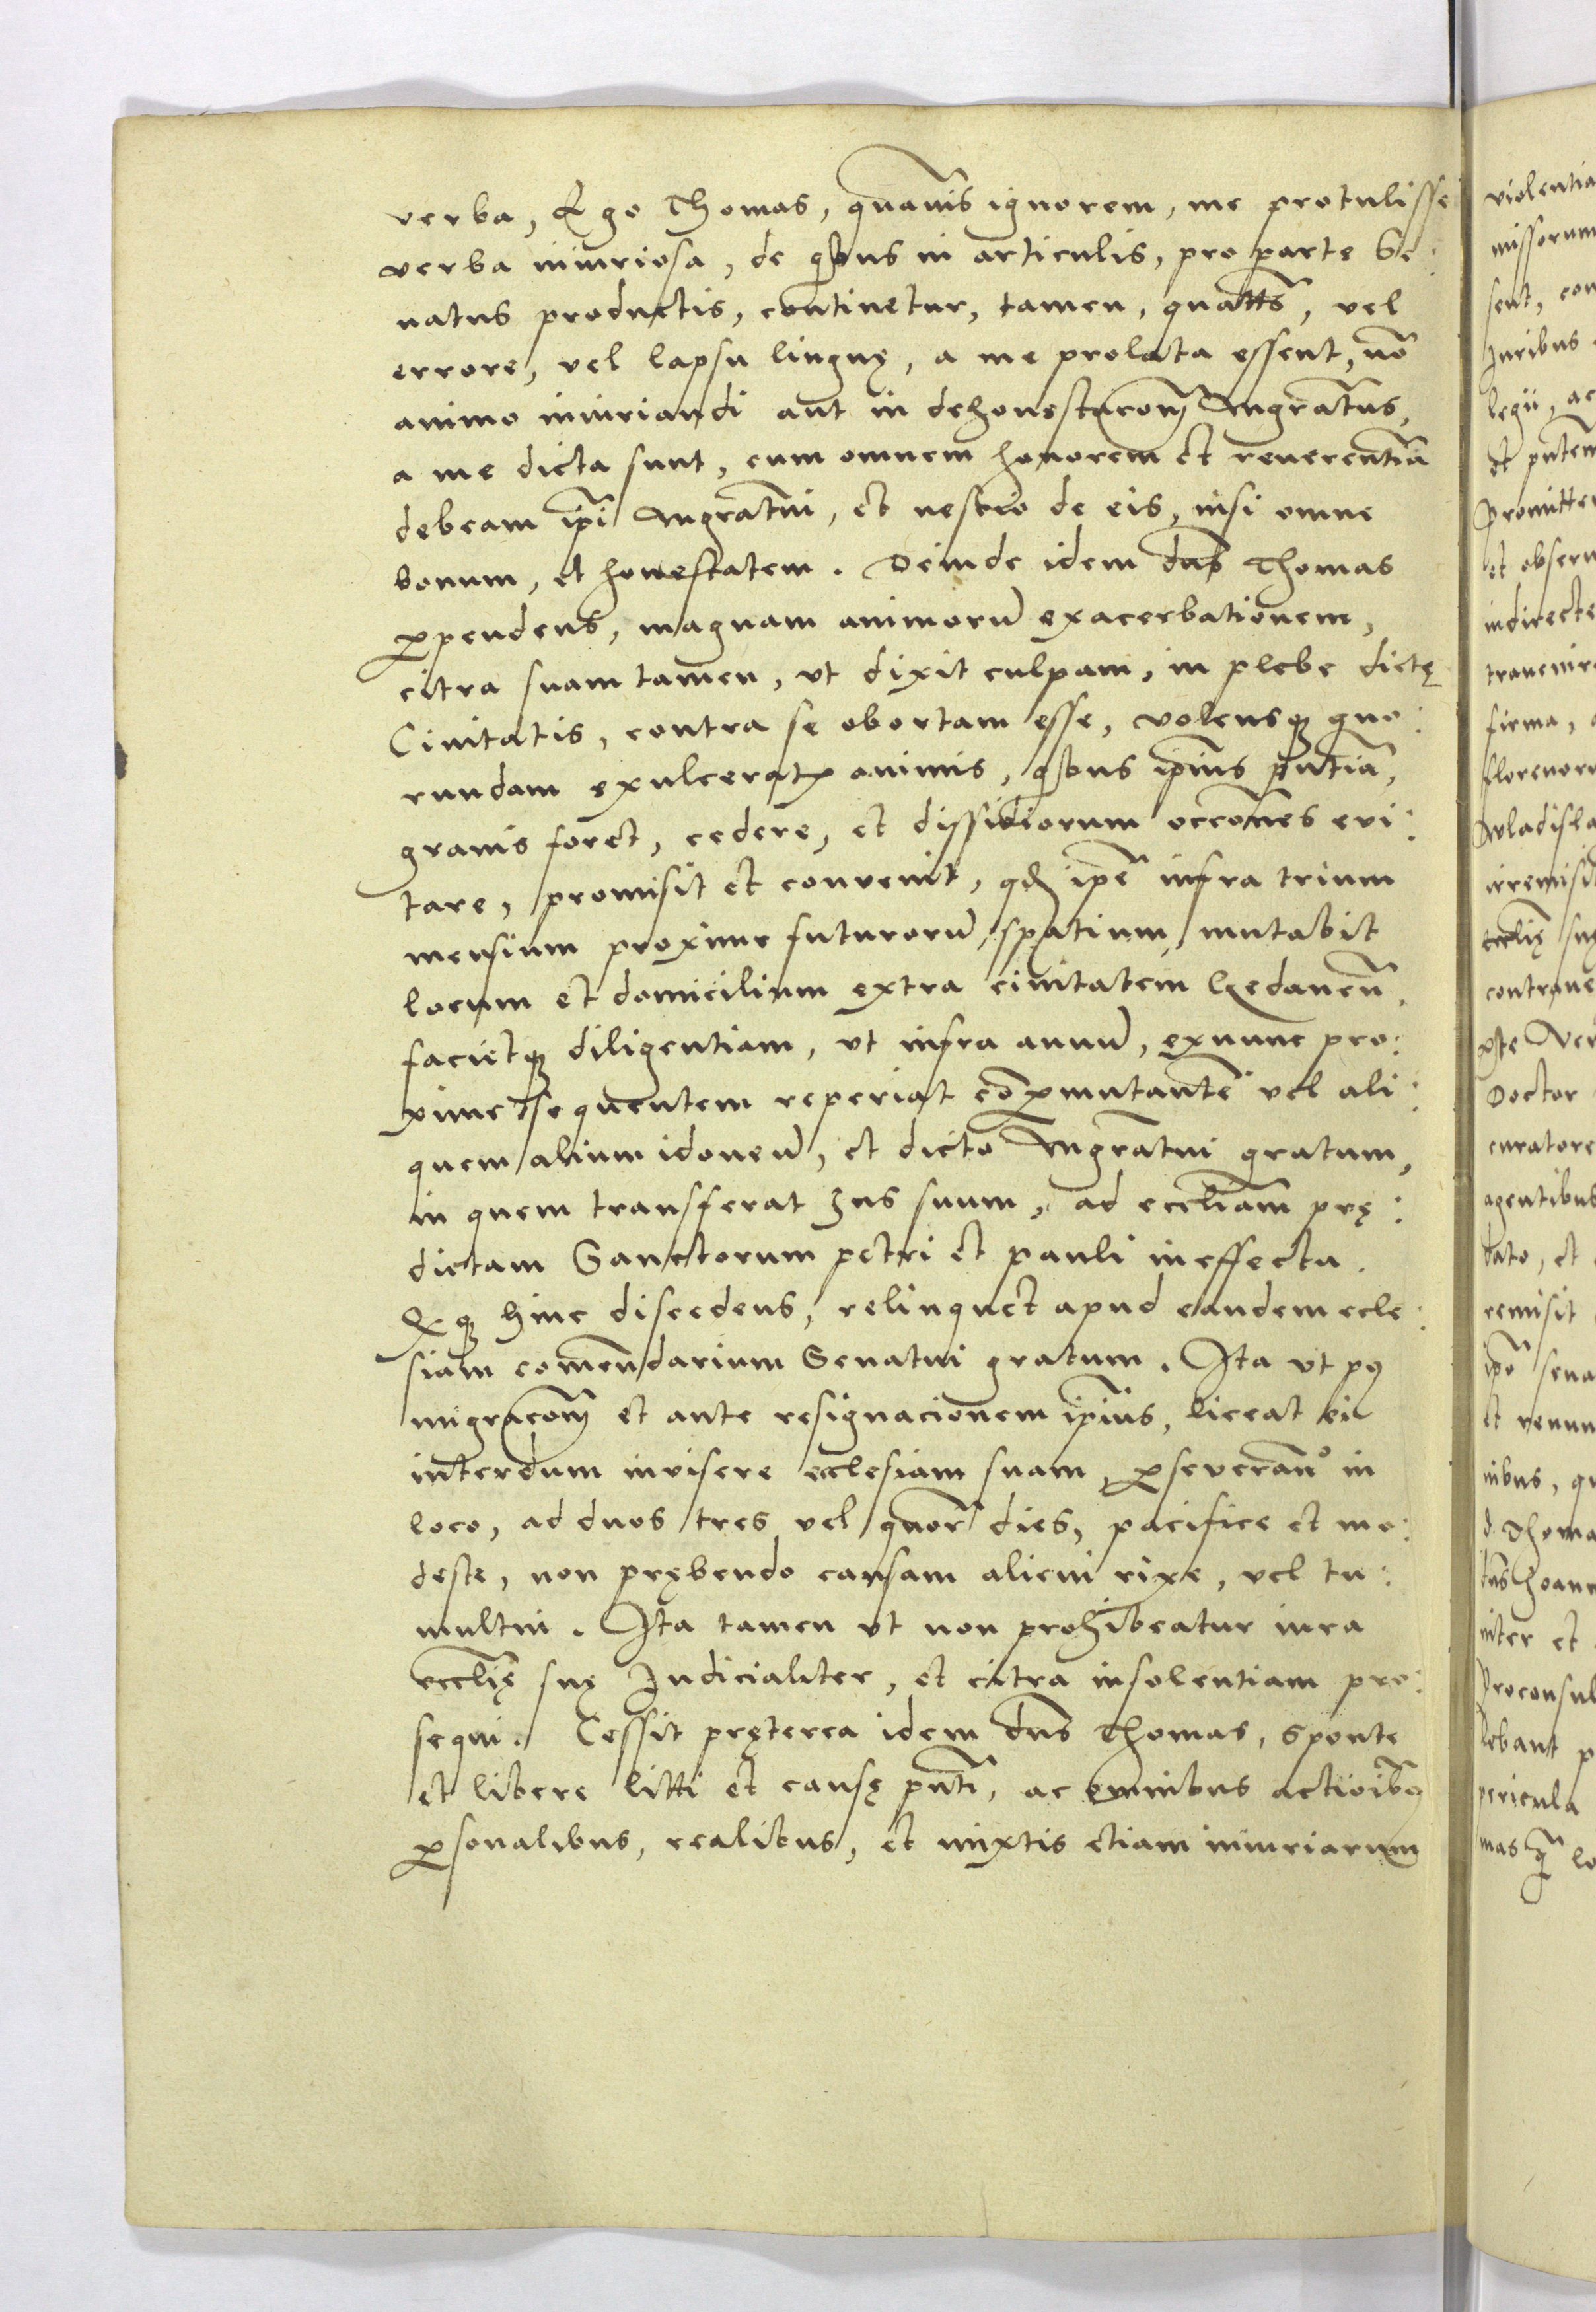 verba, Ego Thomas, quamuis ignorem, me protulisse
verba iniuriosa, de qbus in articulis, pro parte Se:
natus productis, continetur, tamen, quatts, vel
errore, vel lapsu linguę, a me prolata essent, nō
animo iniuriandi aut in dehonestacōm Mgratus,
a me dicta sunt, cum omnem honorem et reuerentiā
debeam ipi Mgratui, et nescio de eis, nisi omne
bonum, et honestatem. Deinde idem dns Thomas
ꝑpendens, magnam animorū exacerbationem,
citra suam tamen, vt dixit culpam, in plebe dictę
Ciuitatis, contra se obortam esse, volensqꝫ quo:
rundam exulceratꝭ animis, qbus ipius pntia,
grauis foret, cedere, et dissidiorum occones eui:
tare, promisit et conuenit, qd ipe infra trium
mensium proxime futurorū, spatium, mutabit
locum et domicilium extra ciuitatem Gedanen,
facietqꝫ diligentiam, vt infra annū, exnunc pro:
xime sequentem reperiat cōꝑmutantē vel ali:
quem alium idoneū, et dicto Mgratui gratum,
in quem transferat Jus suum, ad eccliam prę:
dictam Sanctorum petri et pauli in effectu.
Et qꝫ hinc discedens, relinquet apud eandem eccle:
siam comendarium Senatui gratum. Ita vt pꝰ
migracōm et ante resignacionem ipius, liceat ei
interdum inuisere ecclesiam suam, ꝑseueranᵒ in
loco, ad duos tres vel quor dies, pacifice et mo:
deste, non prębendo causam alicui rixe, vel tu:
multui. Ita tamen vt non prohibeatur iura
ecclię suę Judicialiter, et citra insolentiam pro:
sequi. Cessit pręterea idem dns Thomas, sponte
et libere litti et causę pnti, ac omnibus actioibꝰ
ꝑsonalibus, realibus, et mixtis etiam iniuriarum
violentia
missorum
sent, con
Juribus
legii, ac
et pntem
promitte
et obseru
indirecte
trauenire
firma,
florenoru
Wladisla
irremisi
ecclię suę
contraue
Doctor
curatore
agentibus
dato, et
remisit
ipo sena
et renun
nibus, qu
d. Thoma
inter et
Proconsul
lebant p
pericula